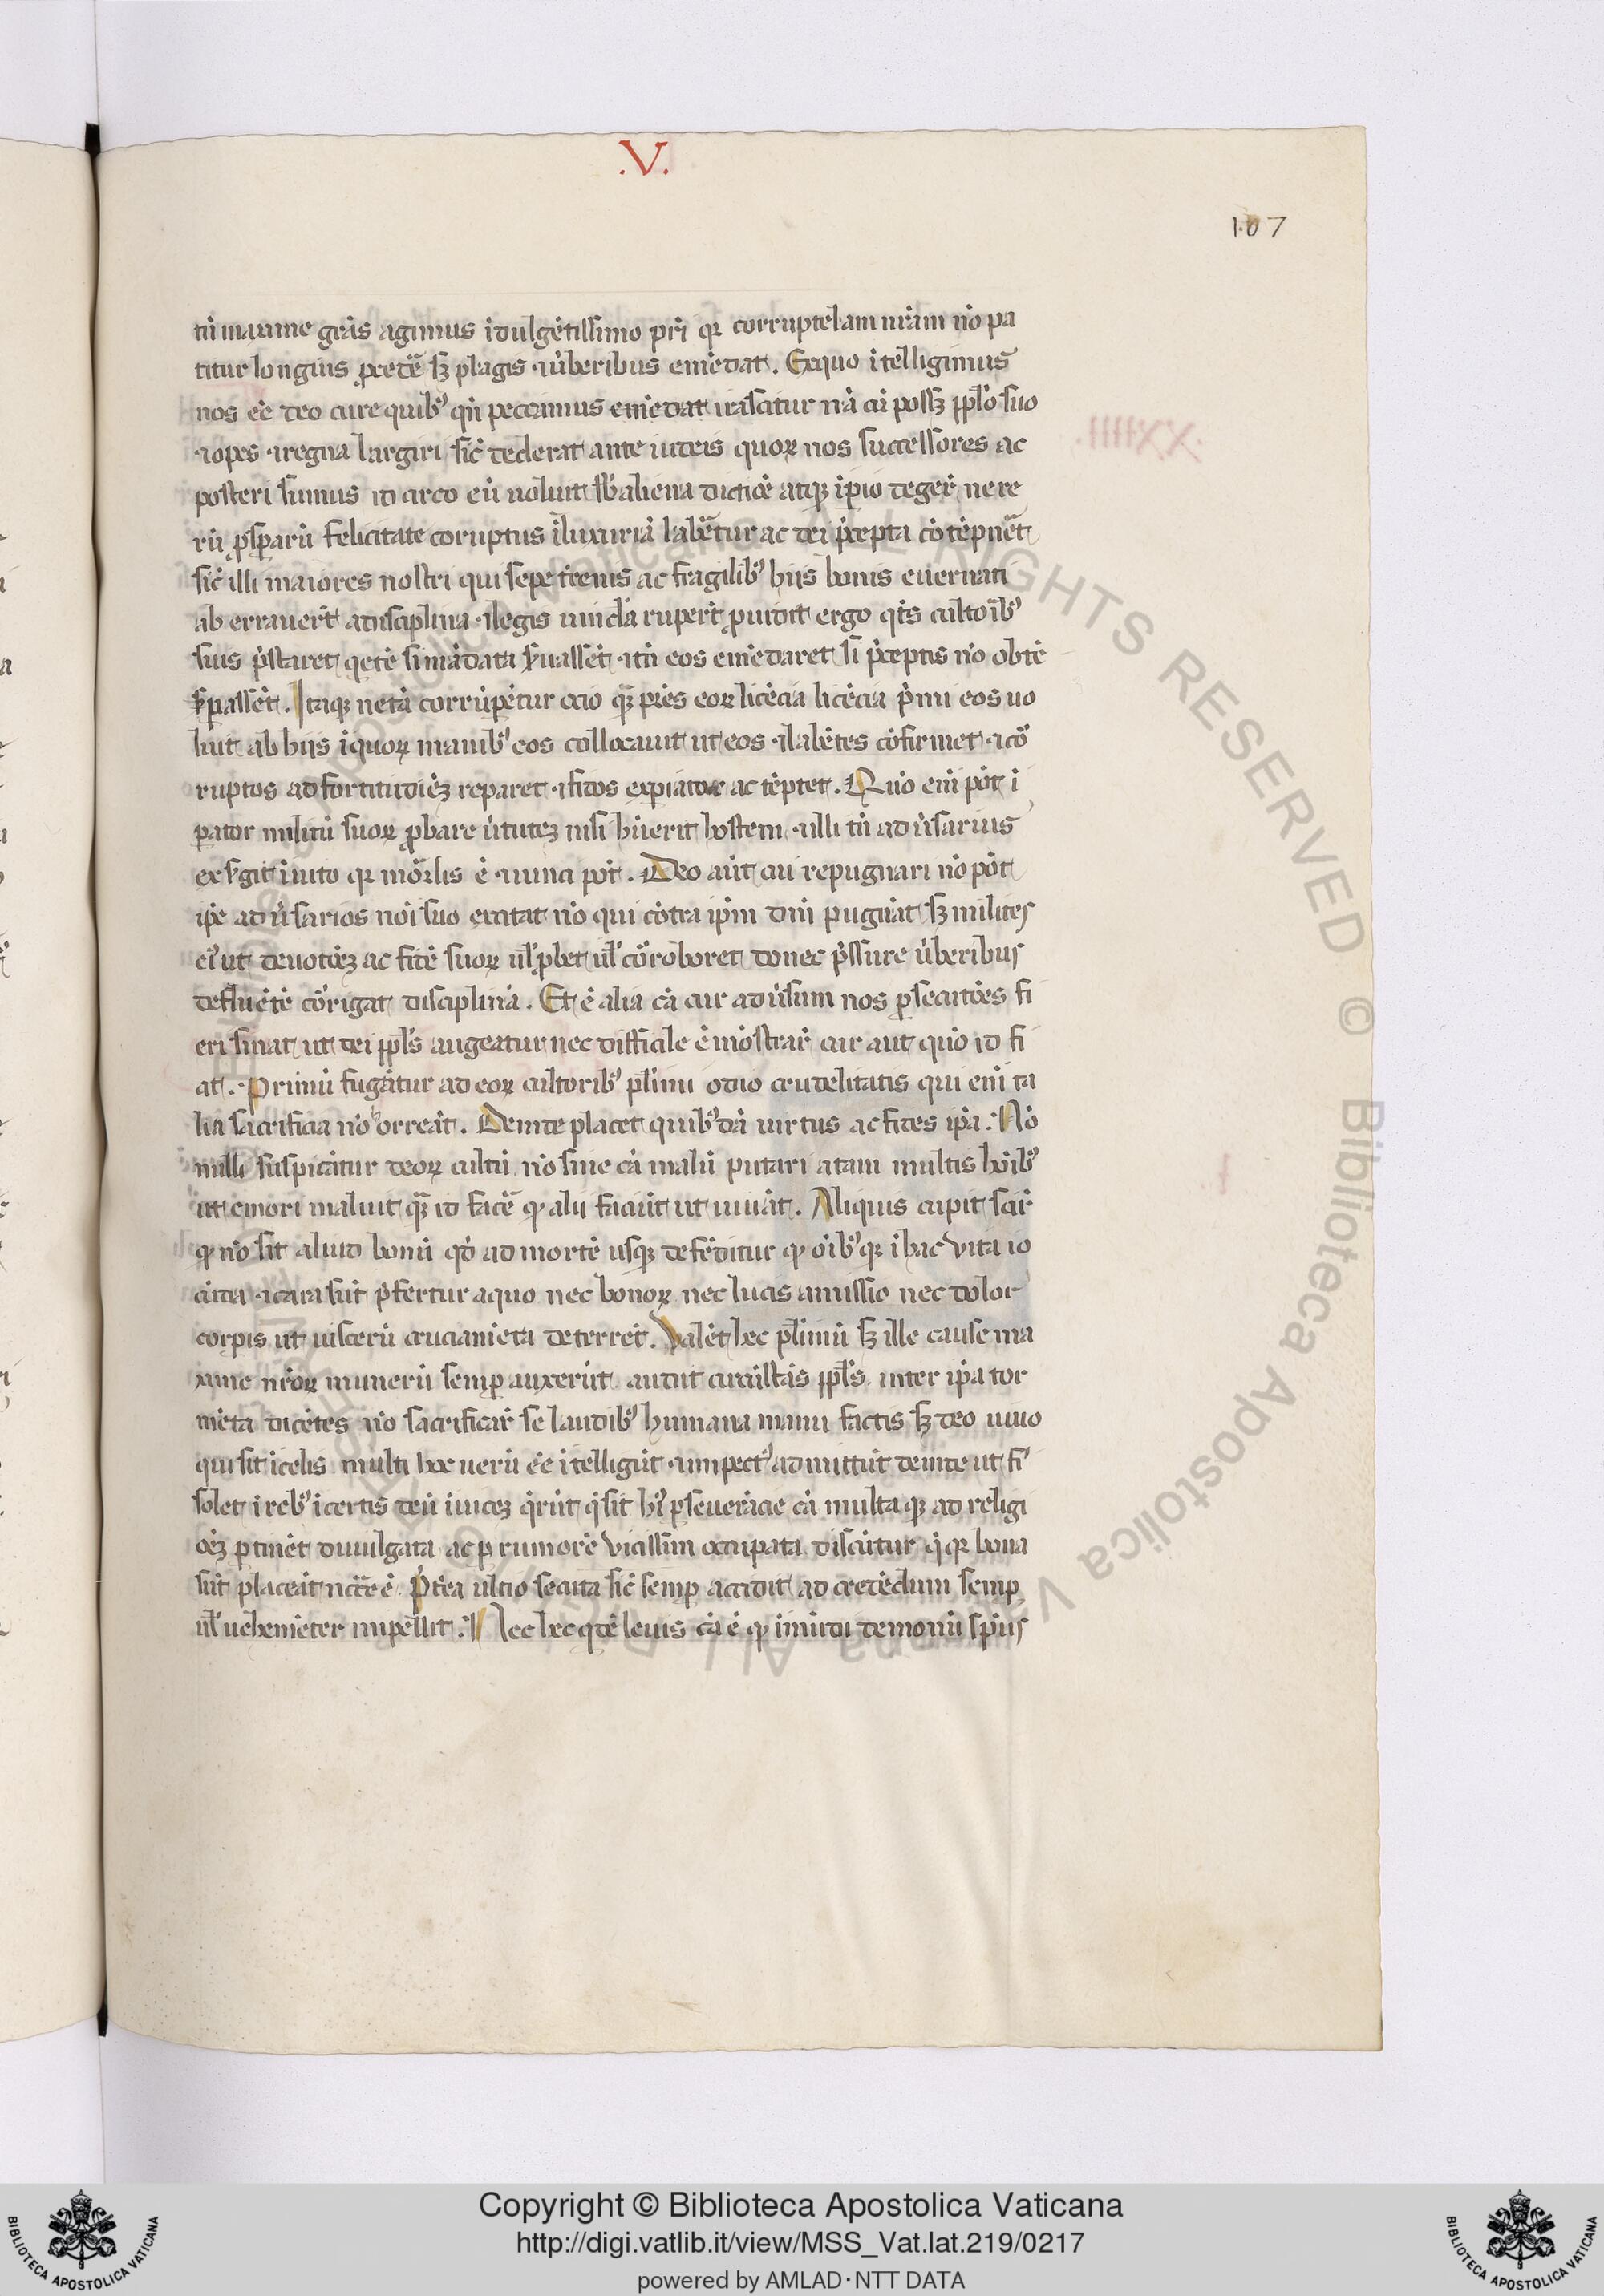 .V.
107
tm̄ maxime gr̄as agimus īdulgētissimo pr̄i qꝛ corruptelam nr̄am nō pa
titur longius p̱cedē sꝫ plagis ⁊ ūberibus emēdat. Exquo ītelligimus
nos eē deo cure quibꝰ qn̄ peccamus emēdat irascitur nā cū possꝫ pp̄lo suo
⁊ opes ⁊ regna largiri sic̄ dederat ante iudeis quoꝝ nos successores ac
posteri sumus id circo eū uoluit sb̄ aliena dictiōe atqꝫ īpio degeē ne re
rū ꝓsꝑarū felicitate coruptus ī luxuriā labētur ac dei p̄cepta cōtēpnēt
sic̄ illi maiores nostri qui sepe t̄renis ac fragilibꝰ hiis bonis eueruati
ab errauert̄ a disciplina ⁊ legis uincl̄a rupert̄ ꝓuidit ergo qt̄s cultoībꝰ
suis p̄staret qetē si mādata s̄uassēt ⁊ tn̄ eos emēdaret si p̄ceptis nō obtē
ꝑassēt. Itaqꝫ ne tā corrūpētur ocio qꝫ pr̄es eoꝝ licēcia licēcia p̄mi eos uo
luit ab hiis ī quoꝝ manibꝰ eos collocauit ut eos ⁊ labētes cōfirmet ⁊ cō
ruptos ad fortitudiēꝫ reparet ⁊ fidos exꝑiatur ac tēptet. Quō eni pōt ī
ꝑator militū suoꝝ ꝓbare ūtuteꝫ nisi hūerit hostem ⁊ illi tn̄ ad ūsarius
exs̄git īuito qꝛ mōrlis ē ⁊ uinci pōt. Deo aūt cui repugnari nō pōt
ip̄e ad ūsarios noī suo excitat nō qui cōtra ip̄m dm̄ pugnāt sꝫ milites
eiꝰ ut deuotōeꝫ ac fidē suoꝝ ul̄ ꝓbet ul̄ cōroboret donec p̄ssure ūberibus
defluētē cōrigat disciplinā. Et ē alia cā cur ad ūsum nos ꝑsecutōes fi
eri sinat ut dei pp̄ls augeatur nec difficile ē mōstrar̄ cur aut quō id fi
at. Primū fugātur ad eoꝝ cultoribꝰ pl̄imi odio crudelitatis qui eni ta
lia sacrificia nō horreāt. Deinde placet quibꝰdā uirtus ac fides ip̄a. Nō
nulli suspicātur deoꝝ cultū nō sine cā malū putari a tam multis hoībꝰ
ut emori maluit qꝫ id facē qꝫ alii faciūt ut uiuāt. Aliquis cupit scir̄
qꝫ nō sit aliud bonū qd̄ ad mortē usqꝫ defēditur qꝫ oībꝰ qꝛ ī hac uita io
cūda ⁊ cara sūt p̄fertur a quo nec bonoꝝ nec lucis amissio nec dolor
corꝑis ut uiscerū cruciamēta deterrēt. Valēt hec pl̄imū sꝫ ille cause ma
xime nr̄oꝝ munerū semꝑ auxerūt audit circūstās pp̄ls inter ip̄a tor
mēta dicētes nō sacrificar̄ se laudibꝰ humana manu factis sꝫ deo uiuo
qui sit ī celis multi hoc uerū eē ītelligūt ⁊ in pectꝰ admittūt deinde ut fi
solet ī rebꝰ īcertis deū īuiceꝫ q̄rūt q̄ sit hꝰ ꝑseuerācie cā multa qꝫ ad religi
oēꝫ ꝑtinēt diuulgata ac ꝑ rumorē uicissim occupata discūtur q̄ qꝛ bona
sūt placeāt nccē ē. P̄t̄ea ultio secuta sic̄ semꝑ accidit ad credēdum semꝑ
ul̄ uehemēter impellit. Nec hec qdē leuis cā ē qꝫ īmūdi demonū spūs
Copyright © Biblioteca Apostolica Vaticana
http://digi.vatlib.it/view/MSS_Vat.lat.219/0217
powered by AMLAD · NTT DATA
BIBLIOTECA APOSTOLICA VATICANA
BIBLIOTECA APOSTOLICA VATICANA